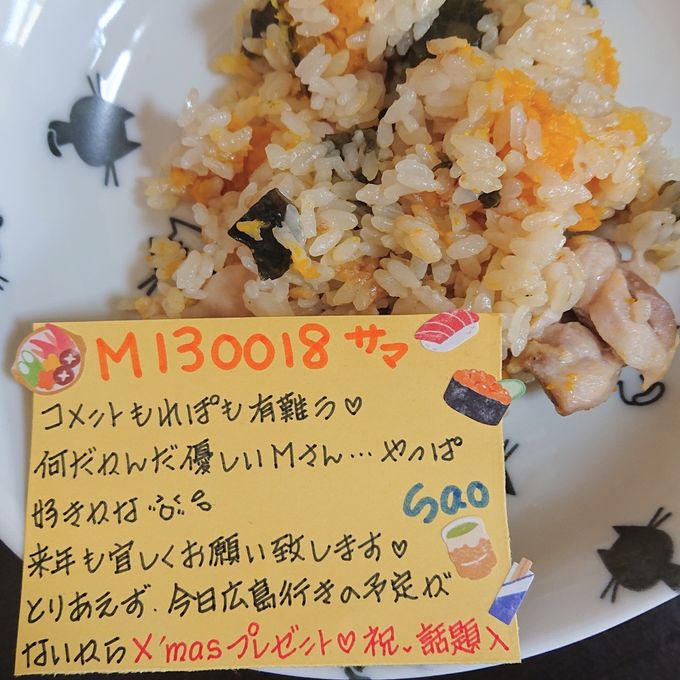 M130018サマ
コメントもれぽも有難う♡
何だかんだ優しいMさん…やっぱ
好きかな
Sao
来年も宜しくお願い致します♡
とりあえず、今日広島行きの予定が
ないからX'masプレゼント♡祝、話題入